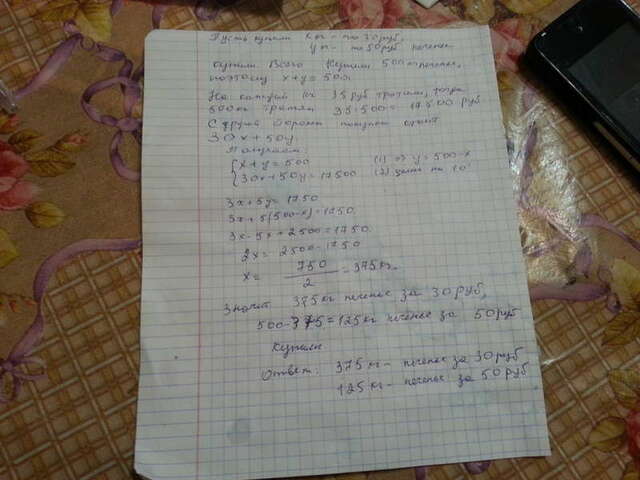 Пусть купили x кг - по 30 руб,
y кг - по 50 руб печенье
купили Всего Купили 500 кг печенье,
поэтому x+y=500.
На каждый кг 35 руб тратили, тогда
500 кг тратили 35·500= 17500 руб
С другой стороны покупка стоит
30x+50y.
Получаем
x+y=500 (1) => y=500-x
30x+50y=17500 (2) делим на 10
3x+5y=1750
3x+5(500-x)=1750
3x-5x+2500=1750
2x= 2500-1750
x= 750/2 =375кг.
Значит 375кг печенье за 30 руб,
500-375=125кг печенье за 50 руб
Купили
Ответ: 375 кг - печенье за 30 руб
125 кг - печенье за 50 руб